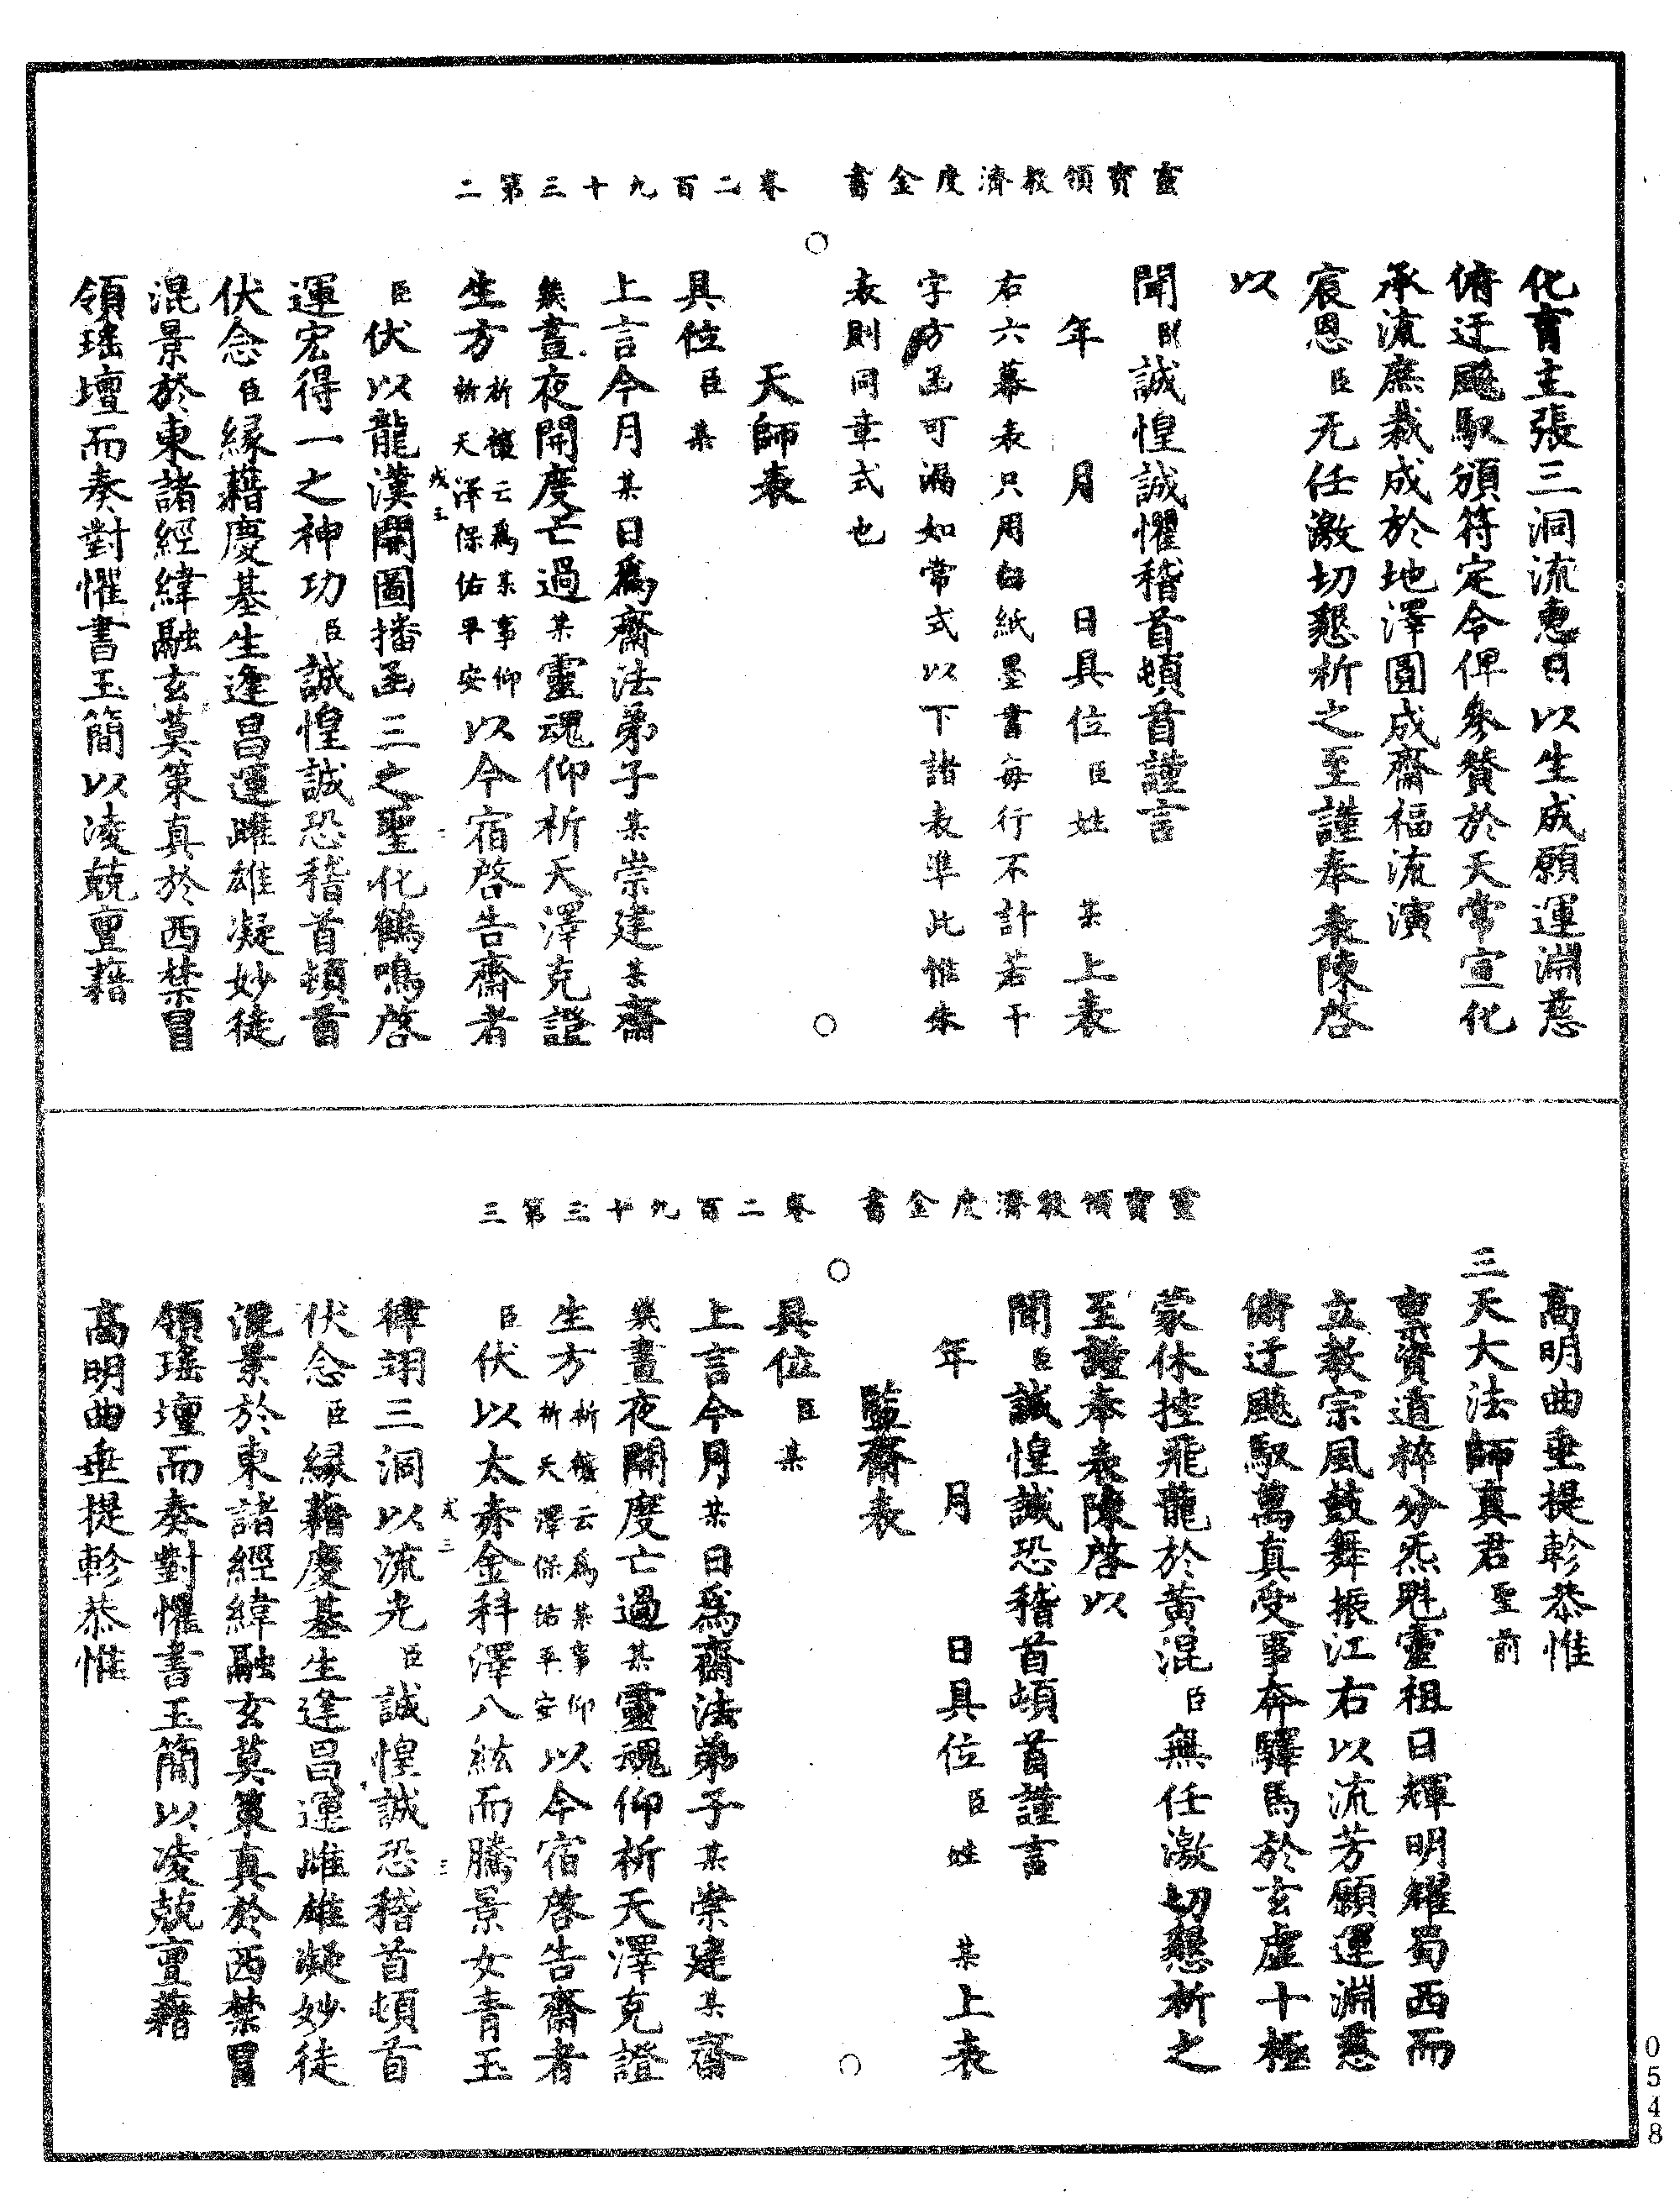 靈寶領教濟度金書　卷二百九十三第二
化育主張三洞流惠日以生成願運淵慈
俯迂飈馭頒符定令俾參贊於天常宣化
承流庶裁成於地澤圓成齋福流演
宸恩臣无任激切懇祈之至謹奉表陳啓
以
聞臣誠惶誠懼稽首頓首謹言
年　月　日具位臣姓　某上表
右六幕表只用白紙墨書每行不計若干
字方函可漏如常式以下諸表準此惟朱
表則同章式也
天師表
具位臣某
上言今月某日爲齋法弟子某崇建某齋
幾晝夜開度亡過某靈魂仰祈天澤克證
生方祈禳云爲某事仰祈天澤保佑平安以今宿啓告齋者
臣伏以龍漢開圖播函三之聖化鶴鳴啓
運宏得一之神功臣誠惶誠恐稽首頓首
伏念臣緣藉慶基生逢昌運雌雄凝妙徒
混景於東諸經緯融玄莫策真於西禁冒
領瑤壇而奏對懼書玉簡以凌兢亶藉
靈寶領教濟度金書　卷二百九十三第三
高明曲垂提軫恭惟
三天大法師真君聖前
亶資道粹分炁魁靈祖日輝明耀蜀西而
立教宗風鼓舞振江右以流芳願運淵慈
俯迂飈馭萬真受事奔驛馬於玄虛十極
蒙休控飛龍於黃混臣無任激切懇祈之
至謹奉表陳啓以
聞臣誠惶誠恐稽首頓首謹言
年　月　日具位臣姓　某上表
監齋表
具位臣某
上言今月某日爲齋法弟子某崇建某齋
幾晝夜開度亡過某靈魂仰祈天澤克證
生方祈禳云爲某事仰祈天澤保佑平安以今宿啓告齋者
臣伏以太赤金科澤八紘而騰景女青玉
律翊三洞以流光臣誠惶誠恐稽首頓首
伏念臣緣藉慶基生逢昌運雌雄凝妙徒
混景於東諸經緯融玄莫策真於西禁冒
領瑤壇而奏對懼書玉簡以凌兢亶藉
高明曲垂提軫恭惟
0548